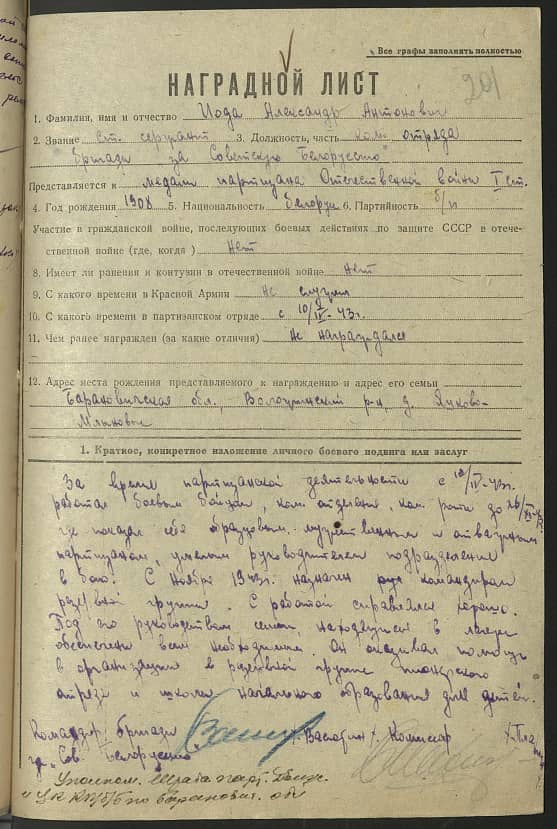 Все графы заполнять полностью
201
НАГРАДНОЙ ЛИСТ
1. Фамилия, имя и отчество Иода Александр Антонович
2. Звание ст. сержант 3. Должность, часть ком. отряда
"Бригады за Советскую Белоруссию"
Представляется к медали партизана Отечественной войны I ст.
4. Год рождения 1908 5. Национальность белорус 6. Партийность б/п
Участие в гражданской войне, последующих боевых действиях по защите СССР в отече-
ственной войне (где, когда) нет
8. Имеет ли ранения и контузии в отечественной войне нет
9. С какого времени в Красной Армии не служил
10. С какого времени в партизанском отряде с 43 г.
11. Чем ранее награжден (за какие отличия) не награждался
12. Адрес места рождения представляемого к награждению и адрес его семьи
Барановичская обл., Воложинский р-н, д.
1. Краткое, конкретное изложение личного боевого подвига или заслуг
За время партизанской деятельности с 43 г.
работал боевым бойцом, ком. отделения, ком. роты до
где показал себя образцовым мужественным и отважным
партизаном, умелым руководителем подразделения
в бою. С Ноября 1943 г. назначен командиром
резервной группы. С работой справлялся хорошо.
Под его руководством семьи, находящиеся в лагере
обеспечены всем необходимым. Он оказывал помощь
в организации в резервной группе пионерского
отряда и школы начального образования для детей.
Командир бригады Комисар
за "Сов. Белоруссию"
Уполном. Штаба парт. движ.
и ЦК КП/б/Б по Баранович. обл.